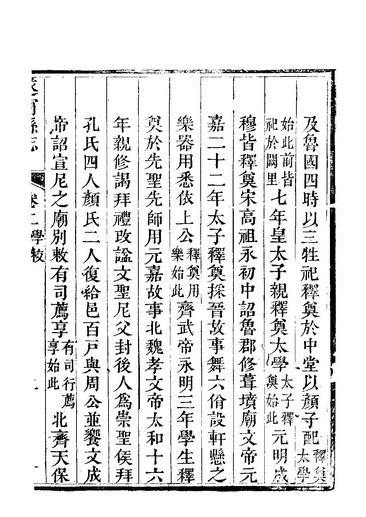 及魯國四時以三牲祀釋奠於中堂以顏子配釋奠太學
始此前皆祀於闕里七年皇太子親釋奠太學太子釋奠始此元明成
穆皆釋奠宋高祖永初中詔魯郡修葺墳廟文帝元
嘉二十二年太子釋奠採晉故事舞六佾設軒懸之
樂器用悉依上公釋奠用樂始此齊武帝永明三年學生釋
奠於先聖先師用元嘉故事北魏孝文帝太和十六
年親修謁拜禮改謚文聖尼父封後人為崇聖侯拜
孔氏四人顏氏二人復給邑百戶與周公並饗文成
帝詔宣尼之廟別敕有司薦享有司行薦享始此北齊天保
縣志
卷二學校